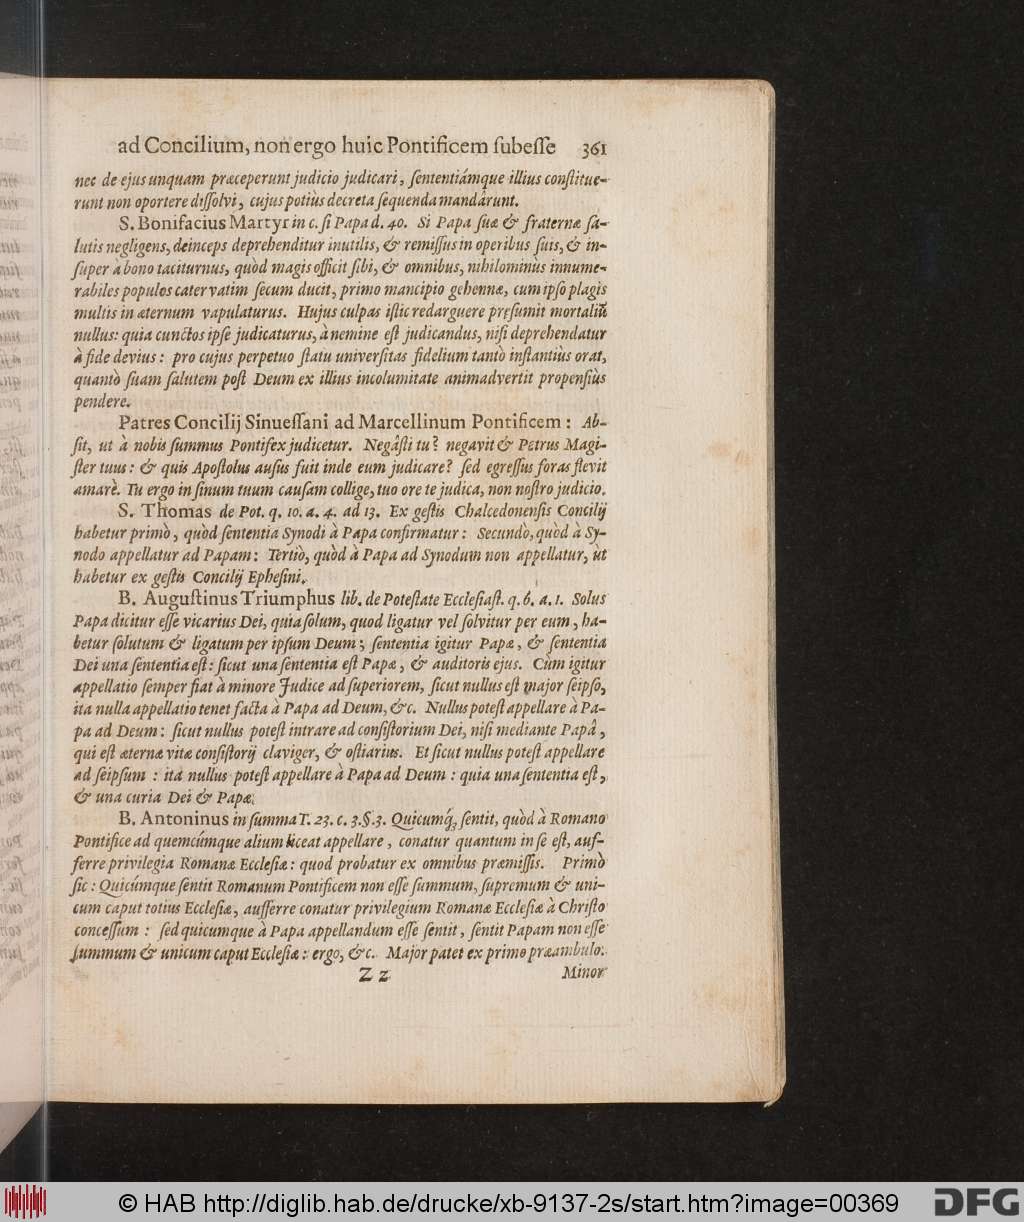 ad Concilium, non ergo huic Pontificem ſubeſſe 361
nec de ejus unquam præceperunt judicio judicari, ſententiámque illius conſtitue-
runt non oportere diſſolvi, cujus potiùs decreta ſequenda mandârunt.
S. Bonifacius Martyr in c. ſi Papa d. 40. Si Papa ſuæ & fraternæ ſa-
lutis negligens, deinceps deprehenditur inutilis, & remiſſus in operibus ſuis, & in-
ſuper à bono taciturnus, quòd magis officit ſibi, & omnibus, nihilominùs innume-
rabiles populos catervatim ſecum ducit, primo mancipio gehennæ, cum ipſo plagis
multis in æternum vapulaturus. Hujus culpas iſtic redarguere pręſumit mortaliũ
nullus: quia cunctos ipſe judicaturus, à nemine eſt judicandus, niſi deprehendatur
à fide devius: pro cujus perpetuo ſtatu univerſitas fidelium tantò inſtantiùs orat,
quantò ſuam ſalutem poſt Deum ex illius incolumitate animadvertit propenſiùs
pendere.
Patres Concilij Sinueſſani ad Marcellinum Pontificem: Ab-
ſit, ut à nobis ſummus Pontifex judicetur. Negâſti tu? negavit & Petrus Magi-
ſter tuus: & quis Apoſtolus auſus fuit inde eum judicare? ſed egreſſus foras flevit
amarè. Tu ergo in ſinum tuum cauſam collige, tuo ore te judica, non noſtro judicio.
S. Thomas de Pot. q. 10. a. 4. ad 13. Ex geſtis Chalcedonenſis Concilij
habetur primò, quòd ſententia Synodi à Papa confirmatur: Secundò, quòd à Sy-
nodo appellatur ad Papam: Tertiò, quòd à Papa ad Synodum non appellatur, ùt
habetur ex geſtis Concilij Epheſini.
B. Auguſtinus Triumphus lib. de Poteſtate Eccleſiaſt. q. 6. a. 1. Solus
Papa dicitur eſſe vicarius Dei, quia ſolum, quod ligatur vel ſolvitur per eum, ha-
betur ſolutum & ligatum per ipſum Deum; ſententia igitur Papæ, & ſententia
Dei una ſententia eſt: ſicut una ſententia eſt Papæ, & auditoris ejus. Cùm igitur
appellatio ſemper fiat à minore Judice ad ſuperiorem, ſicut nullus eſt major ſeipſo,
ita nulla appellatio tenet facta à Papa ad Deum, &c. Nullus poteſt appellare à Pa-
pa ad Deum: ſicut nullus poteſt intrare ad conſiſtorium Dei, niſi mediante Papâ,
qui eſt æternæ vitæ conſiſtorij claviger, & oſtiarius. Et ſicut nullus poteſt appellare
ad ſeipſum: ita nullus poteſt appellare à Papa ad Deum: quia una ſententia eſt,
& una curia Dei & Papæ.
B. Antoninus in ſumma T. 23. c. 3. §. 3. Quicumq́; ſentit, quòd à Romano
Pontifice ad quemcúmque alium liceat appellare, conatur quantum in ſe eſt, auf-
ferre privilegia Romanæ Eccleſiæ: quod probatur ex omnibus præmiſſis. Primò
ſic: Quicúmque ſentit Romanum Pontificem non eſſe ſummum, ſupremum & uni-
cum caput totius Eccleſiæ, aufferre conatur privilegium Romanæ Eccleſiæ à Chriſto
conceſſum: ſed quicumque à Papa appellandum eſſe ſentit, ſentit Papam non eſſe
ſummum & unicum caput Eccleſiæ: ergo, &c. Major patet ex primo præambulo.
Z z Minor
© HAB http://diglib.hab.de/drucke/xb-9137-2s/start.htm?image=00369 DFG